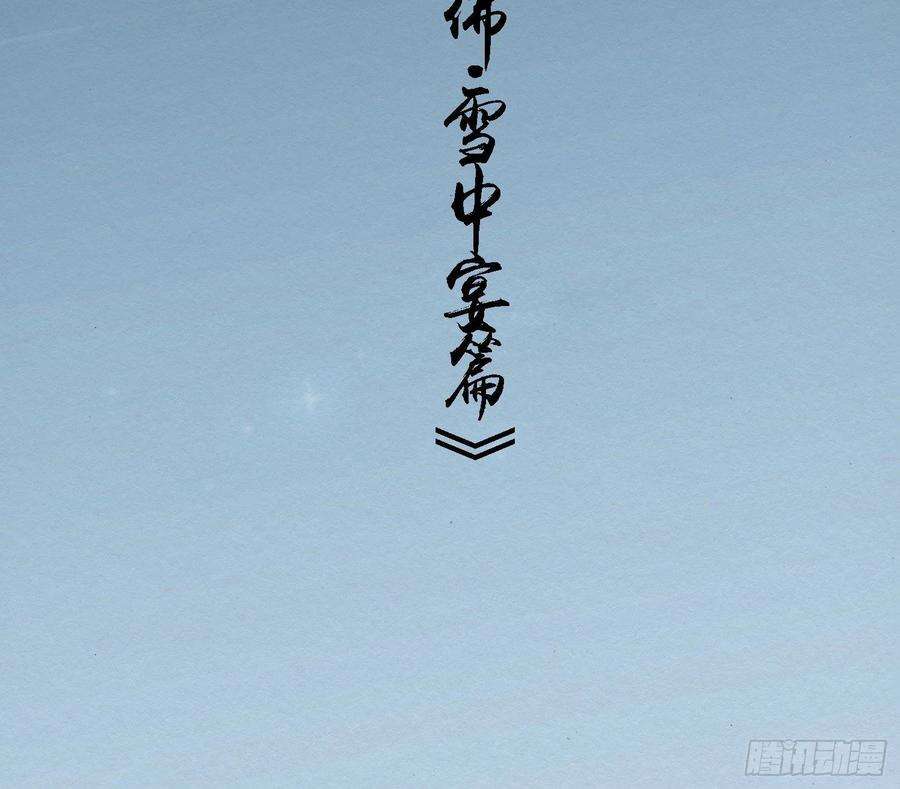 佛·雪中宴篇》
腾讯动漫